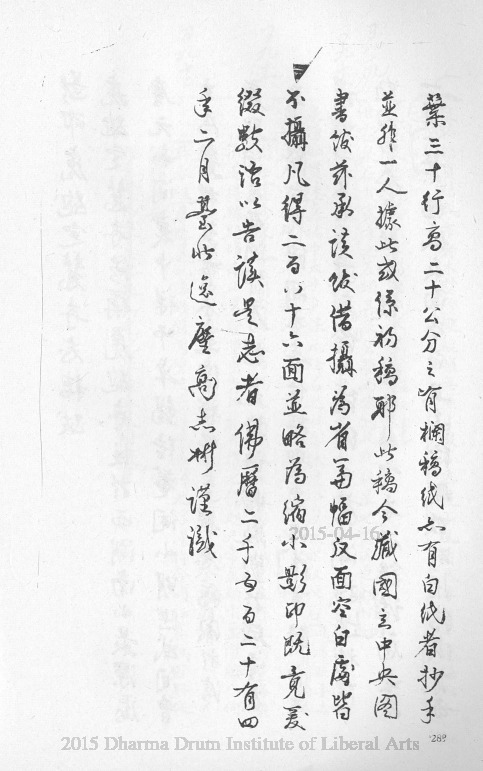 葉三十行高二十公分之有欄稿紙亦有白紙者抄手
並非一人據此或係初稿耶此稿今藏國立中央圖
書館茲承該館借攝為省篇幅反面空白處皆
不攝凡得二百八十六面並略為縮小影印既竟爰
綴數語以告讀是志者佛曆二千五百二十有四
年二月
杜
志彬謹識
2015-04-16
289
2015 Dharma Drum Institute of Liberal Arts